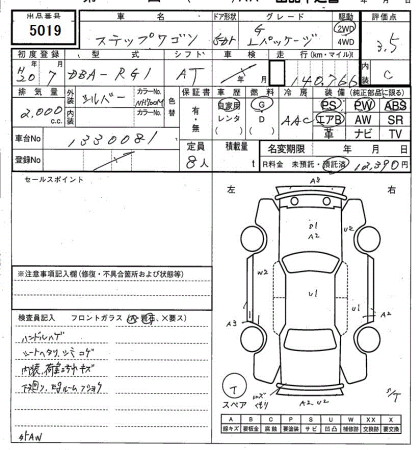 出品番号 車名 ドア形状 グレード 駆動 評価点
5019 ステップワゴン 5ドア G Lパッケージ 2WD 4WD 3.5
初度登録 型式 シフト 車検 走行(km・マイル) 内装
H20 7 DBA-RG1 AT 年 月 140,766 C
排気量 外装 カラーNo. 色替 保証書 車歴 燃料 冷房 装備(純正部品に限る)
2,000c.c. シルバー NH700M 有・無 自家用 レンタ G D AAC PS PW ABS
内装 カラーNo. エアB AW SR
車台No 1330081 革 ナビ TV
登録No 定員 8人 積載量 t 名変期限 年 月 日
R料金 未預託・預託済 12,390円
セールスポイント
左 右
A2
D1
A2
U2
W2
U1
A3
A2
※注意事項記入欄(修復・不具合箇所および状態等)
検査員記入 フロントガラス ×要ス)
ハンドルハゲ
シートヘタリ、シミ コゲ
内装、荷室 キズ
下廻り
スペア
A2 U2
A B C P S U W X XX ×
線キズ 要板金 腐蝕 要塗装 サビ 凹凸 補修跡 交換跡 要交換